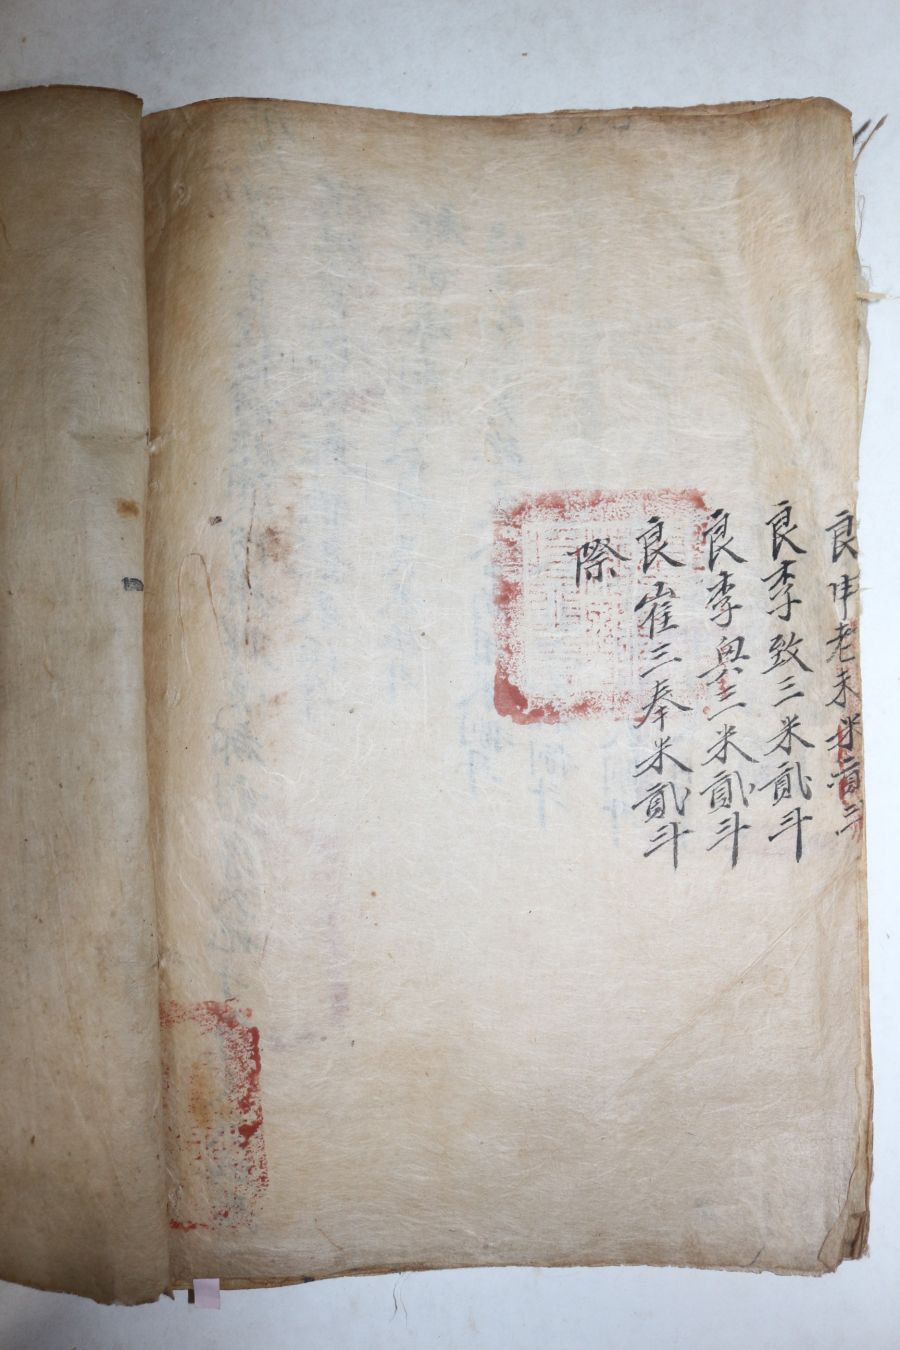 良申老未米貳斗
良李致三米貳斗
良李與三米貳斗
良崔三奉米貳斗
際